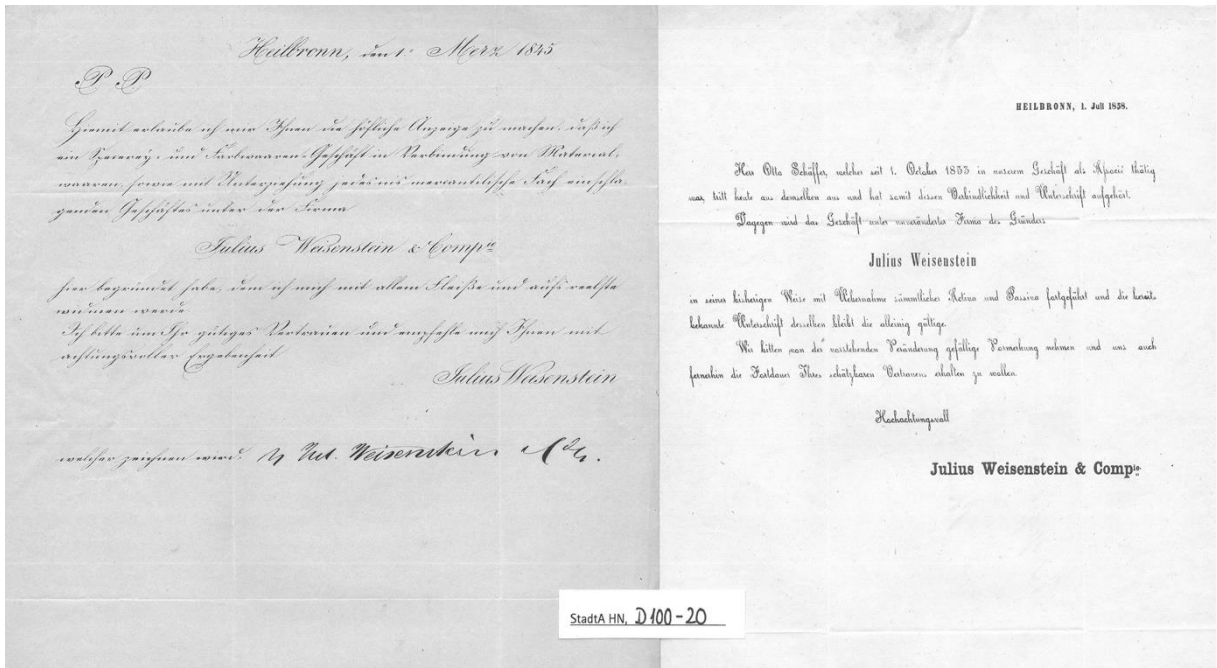 Heilbronn, den 1. Merz 1845
P P
Hiemit erlaube ich mir Ihnen die höfliche Anzeige zu machen, daß ich
ein Spezerey- und Farbwaaren-Geschäft in Verbindung von Material-
waaren, sowie mit Unterziehung jedes ins mercantilische Fach einschla-
genden Geschäftes unter der Firma
Julius Weisenstein & Compie
hier begründet habe, dem ich mich mit allem Fleiße und aufs reelste
widmen werde.
Ich bitte um Ihr gütiges Vertrauen und empfehle mich Ihnen mit
achtungsvoller Ergebenheit
Julius Weisenstein
welcher zeichnen wird: Jul. Weisenstein
HEILBRONN, 1. Juli 1858.
Herr Otto Schäffer, welcher seit 1. October 1855 in unserem Geschäft als Associé thätig
war, tritt heute aus demselben aus und hat somit dessen Verbindlichkeit und Unterschrift aufgehört.
Dagegen wird das Geschäft unter unveränderter Firma des Gründers
Julius Weisenstein
in seiner bisherigen Weise mit Uebernahme sämmtlicher Activa und Passiva fortgeführt und die bereits
bekannte Unterschrift desselben bleibt die alleinig gültige.
Wir bitten von der vorstehenden Veränderung gefällige Vormerkung nehmen und uns auch
fernerhin die Fortdauer Ihres schätzbaren Vertrauens erhalten zu wollen.
Hochachtungsvoll
Julius Weisenstein & Compie.
StadtA HN, D100-20